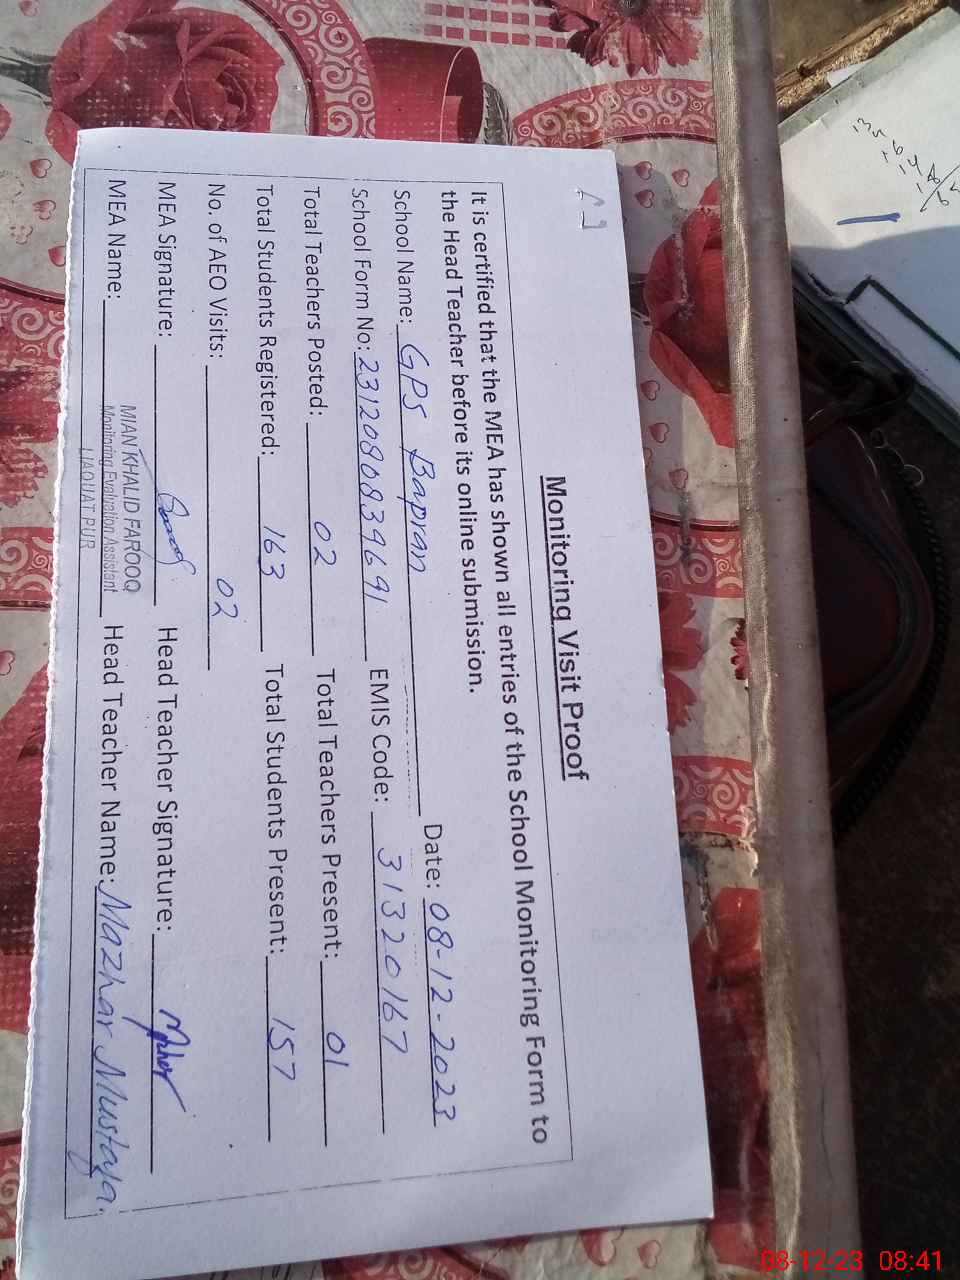 Monitoring Visit Proof
It is certified that the MEA has shown all entries of the School Monitoring Form to
the Head Teacher before its online submission.
School Name: GPS Bapran Date: 08-12-2023
School Form No: 23120808839691 EMIS Code: 31320167
Total Teachers Posted: 02 Total Teachers Present: 01
Total Students Registered: 163 Total Students Present: 157
No. of AEO Visits: 02
MEA Signature: Head Teacher Signature:
MEA Name: MIAN KHALID FAROOQ Head Teacher Name: Mazhar Mustafa.
Monitoring Evaluation Assistant
LIAQUAT PUR
08-12-23 08:41